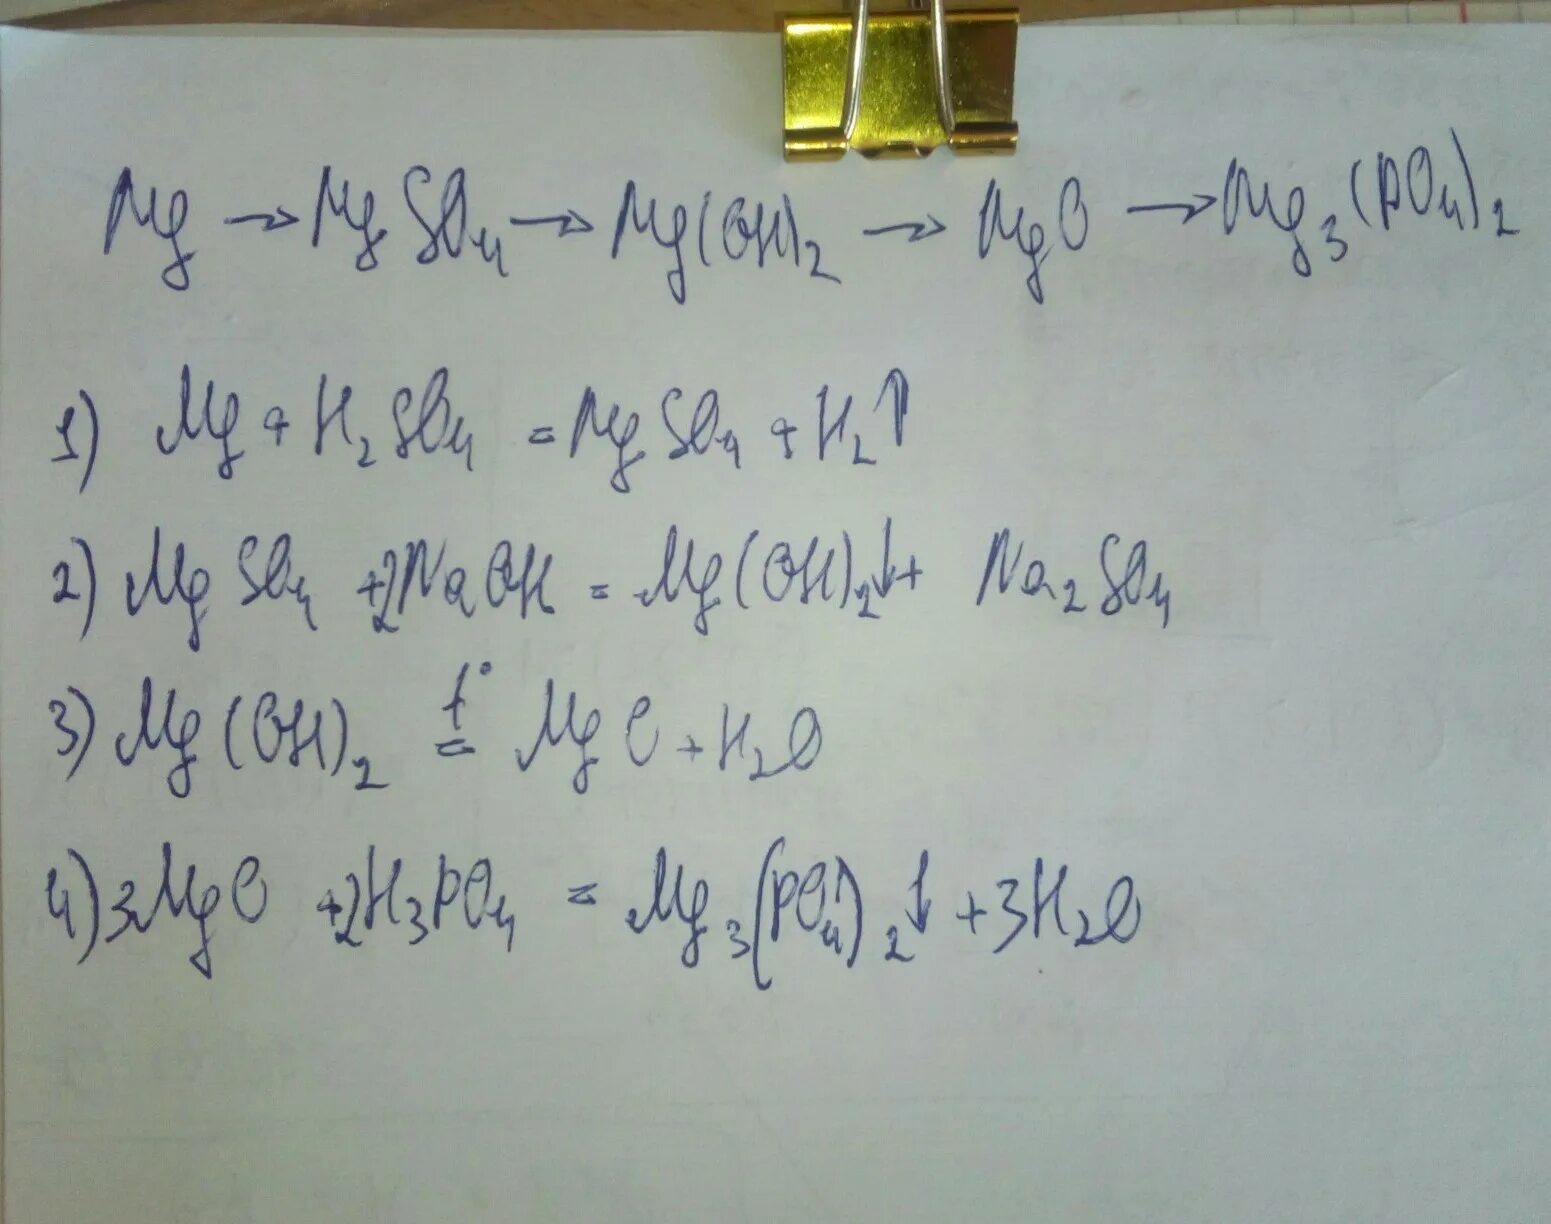 Mg → MgSO₄ → Mg(OH)₂ → MgO → Mg₃(PO₄)₂
1) Mg + H₂SO₄ = MgSO₄ + H₂↑
2) MgSO₄ + 2NaOH = Mg(OH)₂↓ + Na₂SO₄
3) Mg(OH)₂ t°= MgO + H₂O
4) 3MgO + 2H₃PO₄ = Mg₃(PO₄)₂↓ + 3H₂O